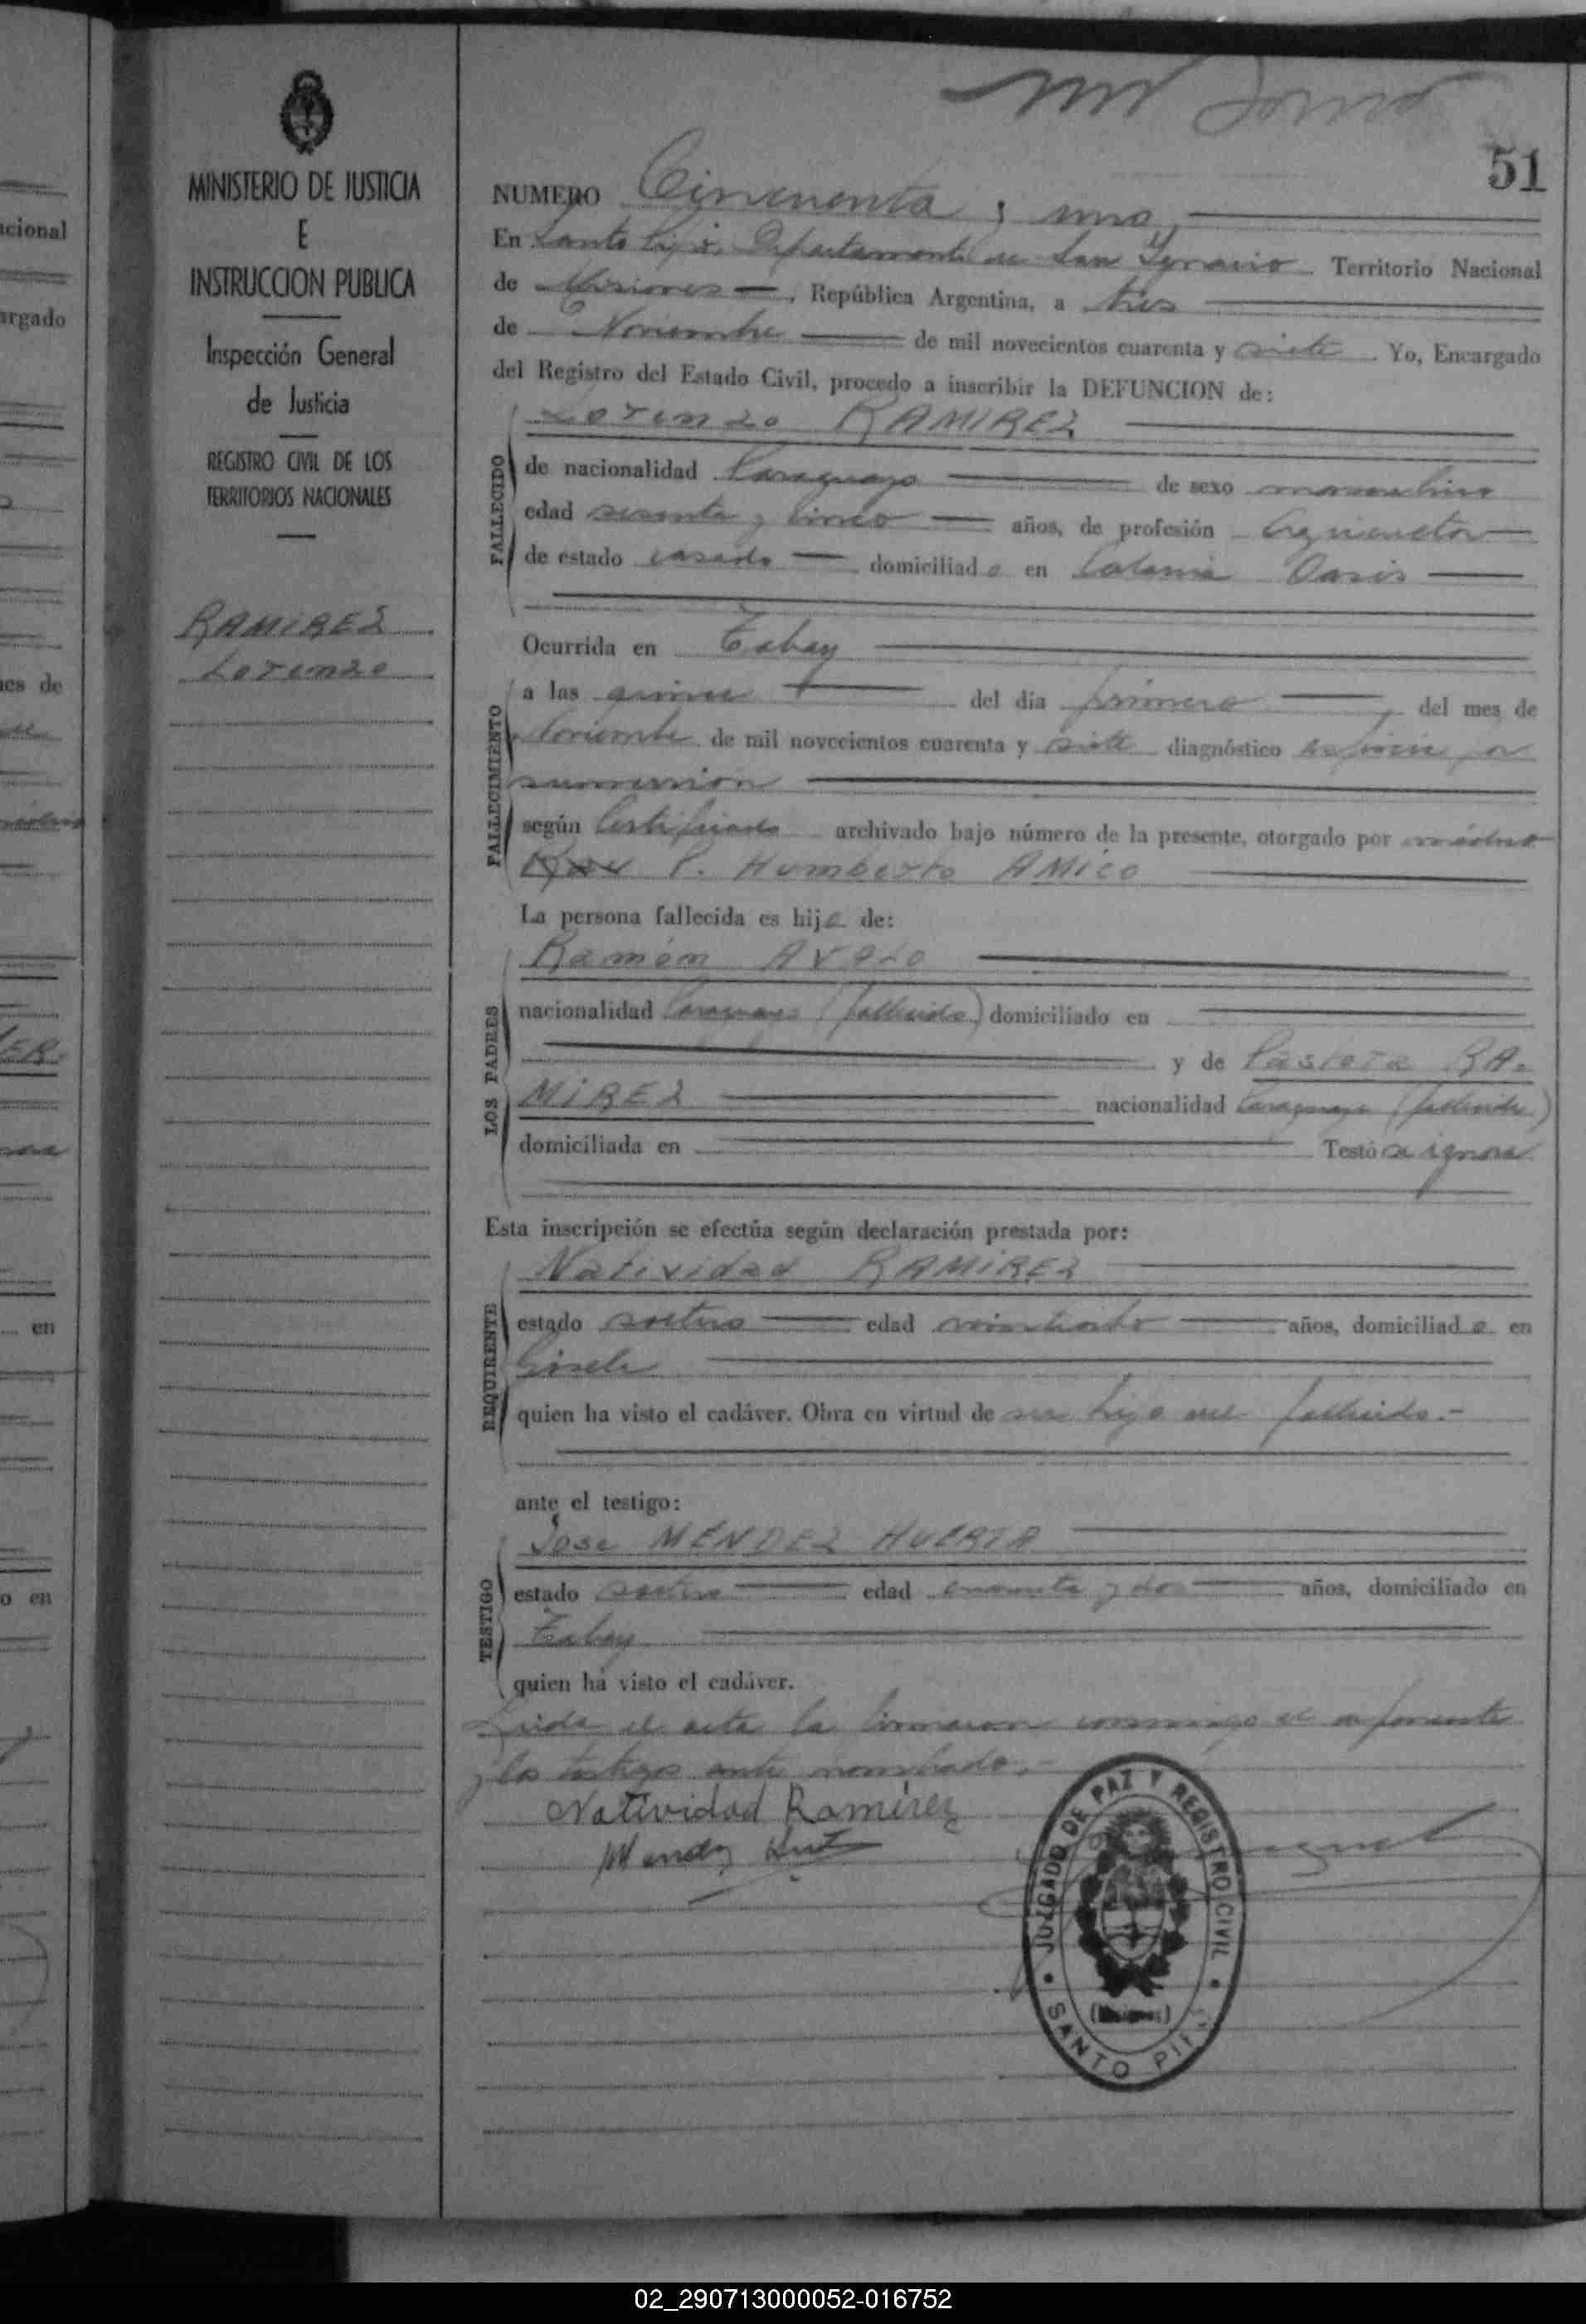 MINISTERIO DE JUSTICIA
E
INSTRUCCION PUBLICA
Inspección General
de Justicia
REGISTRO CIVIL DE LOS
TERRITORIOS NACIONALES
RAMIREZ
Lorenzo
51
NUMERO Cincuenta y uno
En Santo Pipó Departamento de San Ygnacio Territorio Nacional
de Misiones, República Argentina, a tres
de Noviembre de mil novecientos cuarenta y siete. Yo, Encargado
del Registro del Estado Civil, procedo a inscribir la DEFUNCION de:
Lorenzo RAMIREZ
FALLECIDO
de nacionalidad Paraguayo de sexo masculino
edad sesenta y cinco años, de profesión Agricultor
de estado casado domiciliado en Colonia Oasis
Ocurrida en Tabay
FALLECIMIENTO
a las quince del día primero, del mes de
Noviembre de mil novecientos cuarenta y siete diagnóstico asfixia por
sumersión
según Certificado archivado bajo número de la presente, otorgado por médico
P. Humberto AMICO
La persona fallecida es hijo de:
LOS PADRES
Ramón AVALO
nacionalidad Paraguayo (fallecido) domiciliado en
y de Pastora RA-
MIREZ nacionalidad Paraguaya (fallecida)
domiciliada en Testó se ignora
Esta inscripción se efectúa según declaración prestada por:
REQUIRENTE
Natividad RAMIREZ
estado soltero edad veintiocho años, domiciliado en
Gisela
quien ha visto el cadáver. Obra en virtud de ser hijo del fallecido.-
ante el testigo:
TESTIGO
Jose MENDEZ HUERTA
estado soltero edad cuarenta y dos años, domiciliado en
Tabay
quien ha visto el cadáver.
Leida el acta la firmaron conmigo el exponente
y los testigos ante nombrado.-
Natividad Ramirez
Mendez
JUZGADO DE PAZ Y REGISTRO CIVIL
SANTO PIPÓ
(Misiones)
02_290713000052-016752